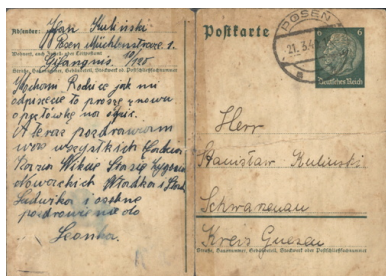 Absender: Jan Kuliński
Posen Mühlenstrasse 1.
Wohnort, auch Zustell- oder Leitpostamt
Gefängnis. 10/120
Straße, Hausnummer, Gebäudeteil, Stockwerk od. Postschließfachnummer
Kochani Rodzice jak mi
odpiszecie to proszę znowu
A teraz pozdrawiam
was wszystkich
Kazia Stasię
obwacich Władka i
Ludwika i osobne
pozdrowienie dla
Leonka.
Postkarte
POSEN
21. 3. 4
6
6
Deutsches Reich
Herr
Stanisław Kulinski
Schwarzenau
Kreis Gnesen
Straße, Hausnummer, Gebäudeteil, Stockwerk oder Postschließfachnummer